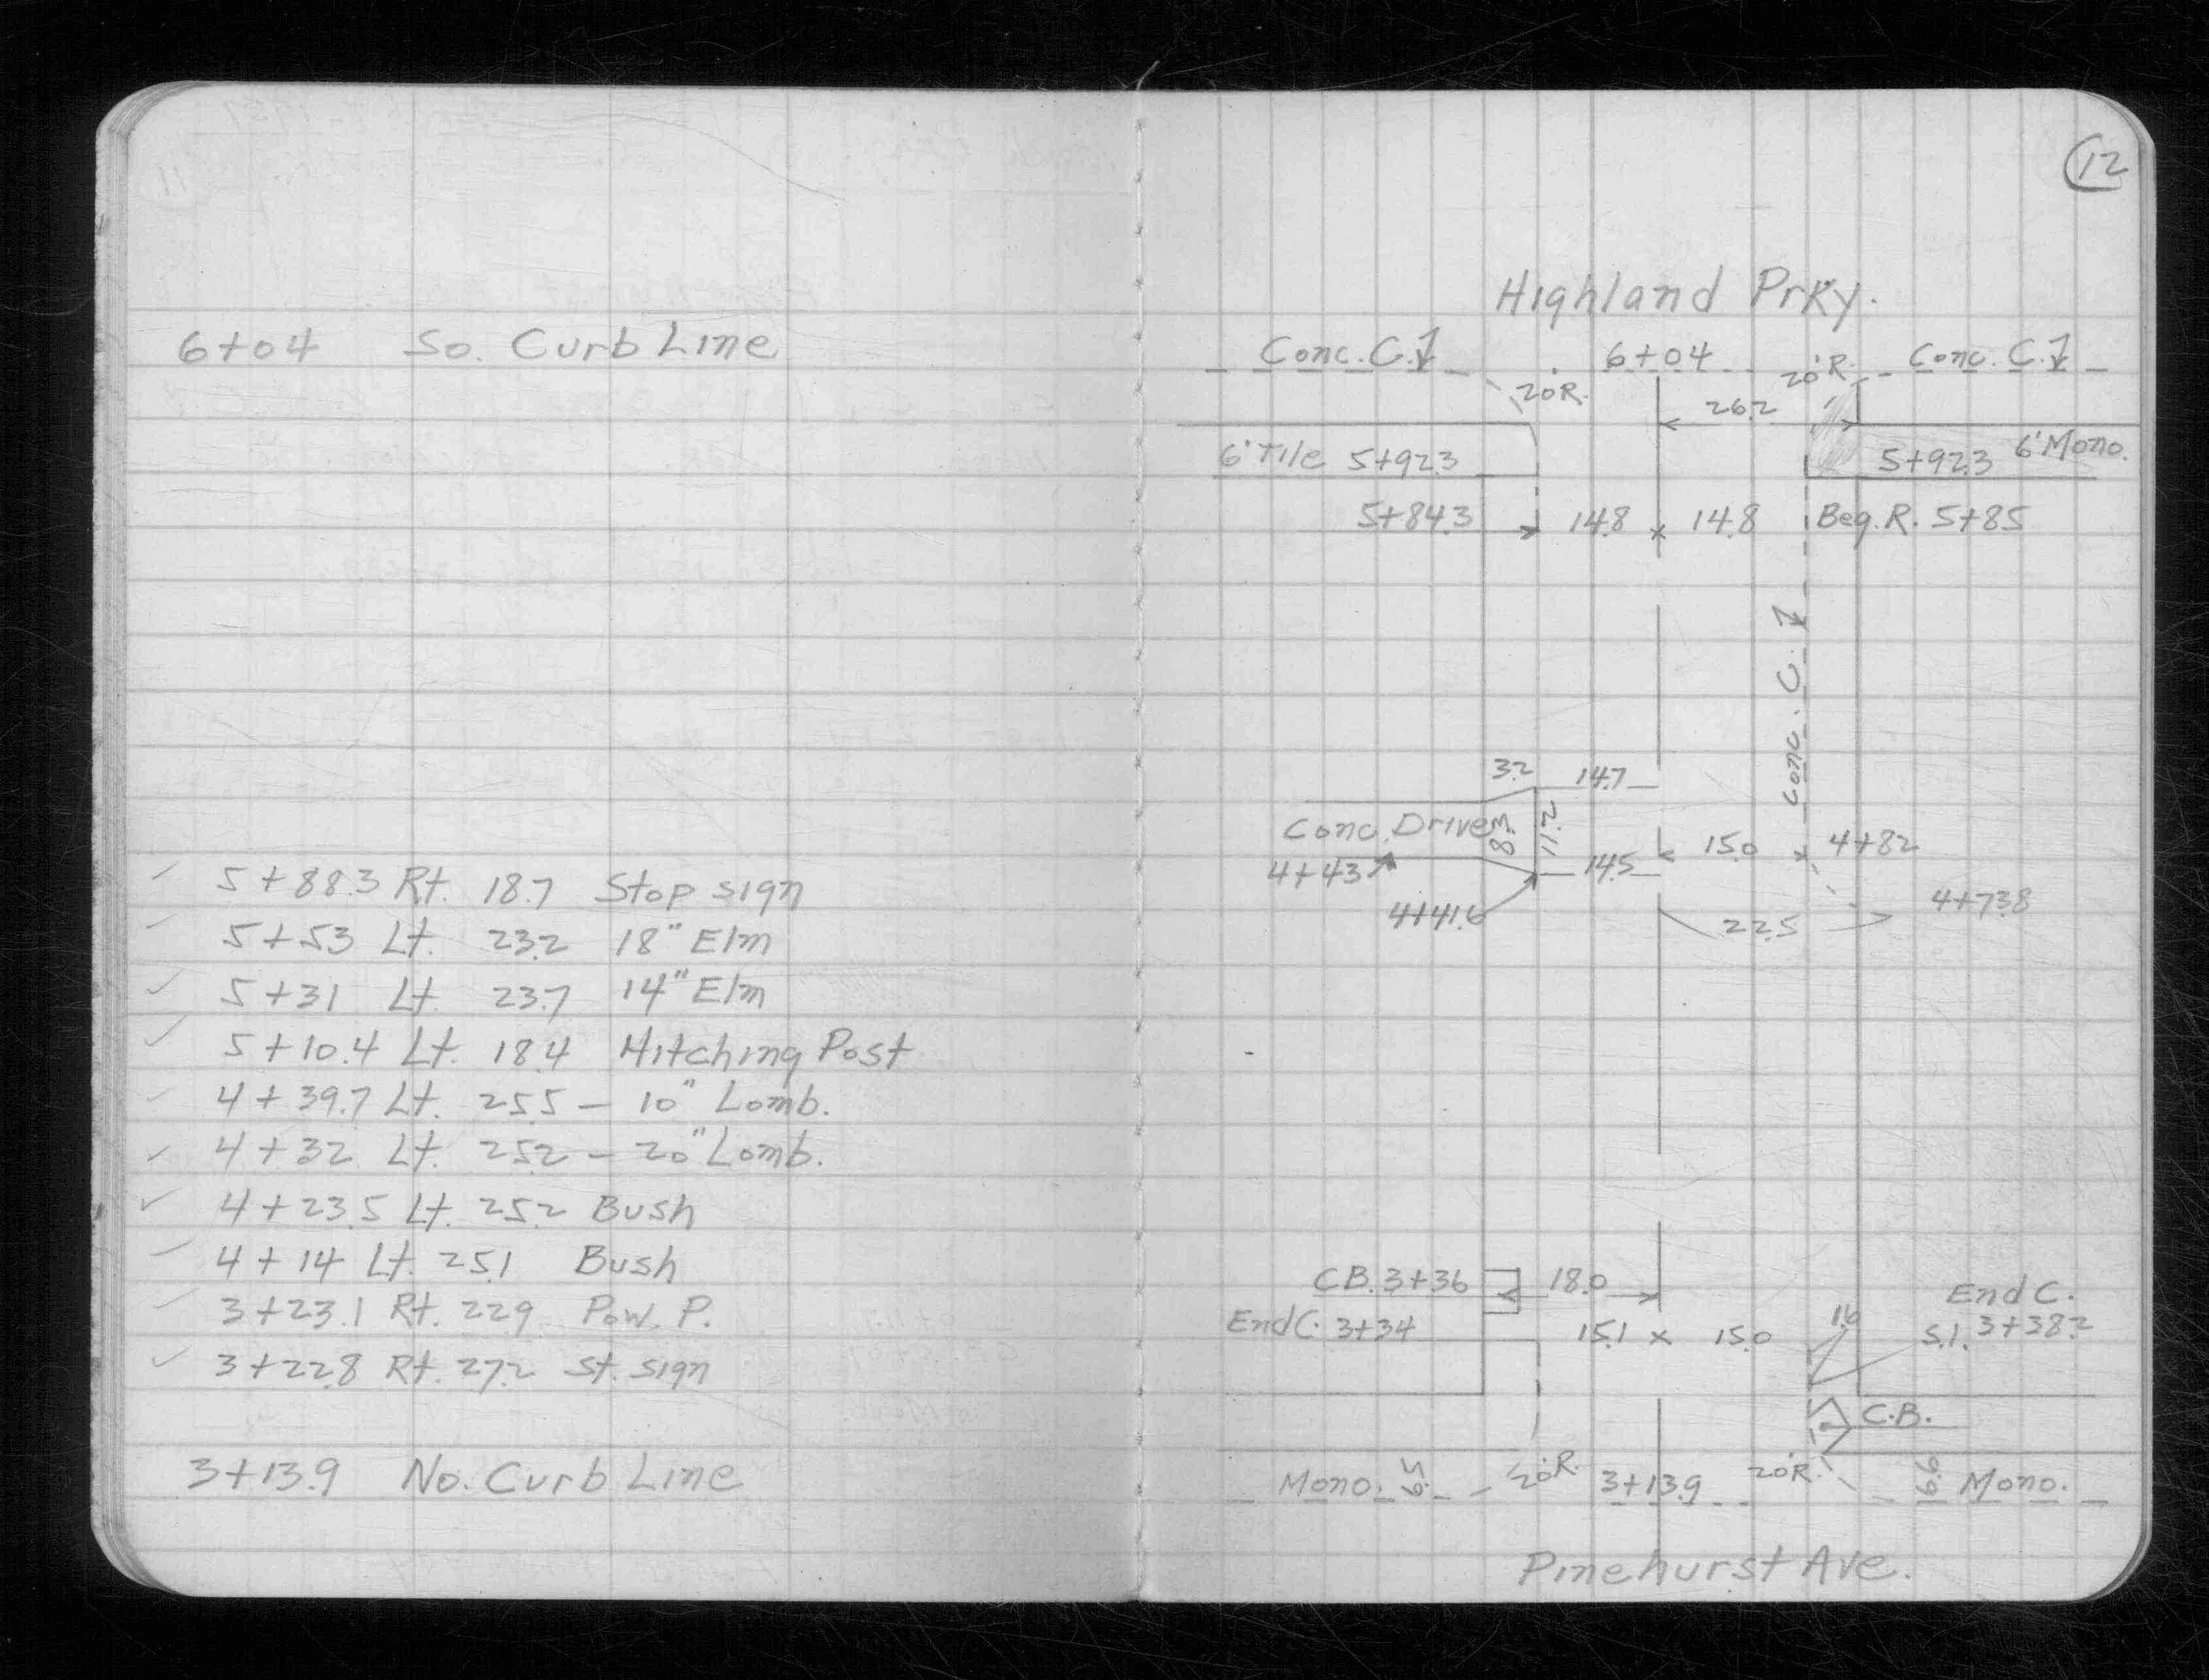 6+04 So. Curb Line
5+88.3 Rt. 18.7 Stop sign
5+53 Lt. 23.2 18" Elm
5+31 Lt. 23.7 14" Elm
5+10.4 Lt. 18.4 Hitching Post
4+39.7 Lt. 25.5 – 10" Lomb.
4+32 Lt. 25.2 – 20" Lomb.
4+23.5 Lt. 25.2 Bush
4+14 Lt. 25.1 Bush
3+23.1 Rt. 22.9 Pow. P.
3+22.8 Rt. 27.2 St. sign
3+13.9 No. Curb Line
12
Highland Prky.
Conc. C. 6+04 Conc. C.
20'R. 20'R.
26.2
6' Tile 5+92.3 5+92.3 6' Mono.
5+84.3 14.8 x 14.8 Beg. R. 5+85
Conc. C.
3.2 14.7
Conc. Drive 8.3 11.2
4+43 14.5 15.0 4+82
4+41.6 22.5 4+73.8
C.B. 3+36 18.0 End C.
End C. 3+34 15.1 x 15.0 1.6 S.I. 3+38.2
C.B.
Mono. 6.5 20'R. 3+13.9 20'R. 6.6 Mono.
Pinehurst Ave.